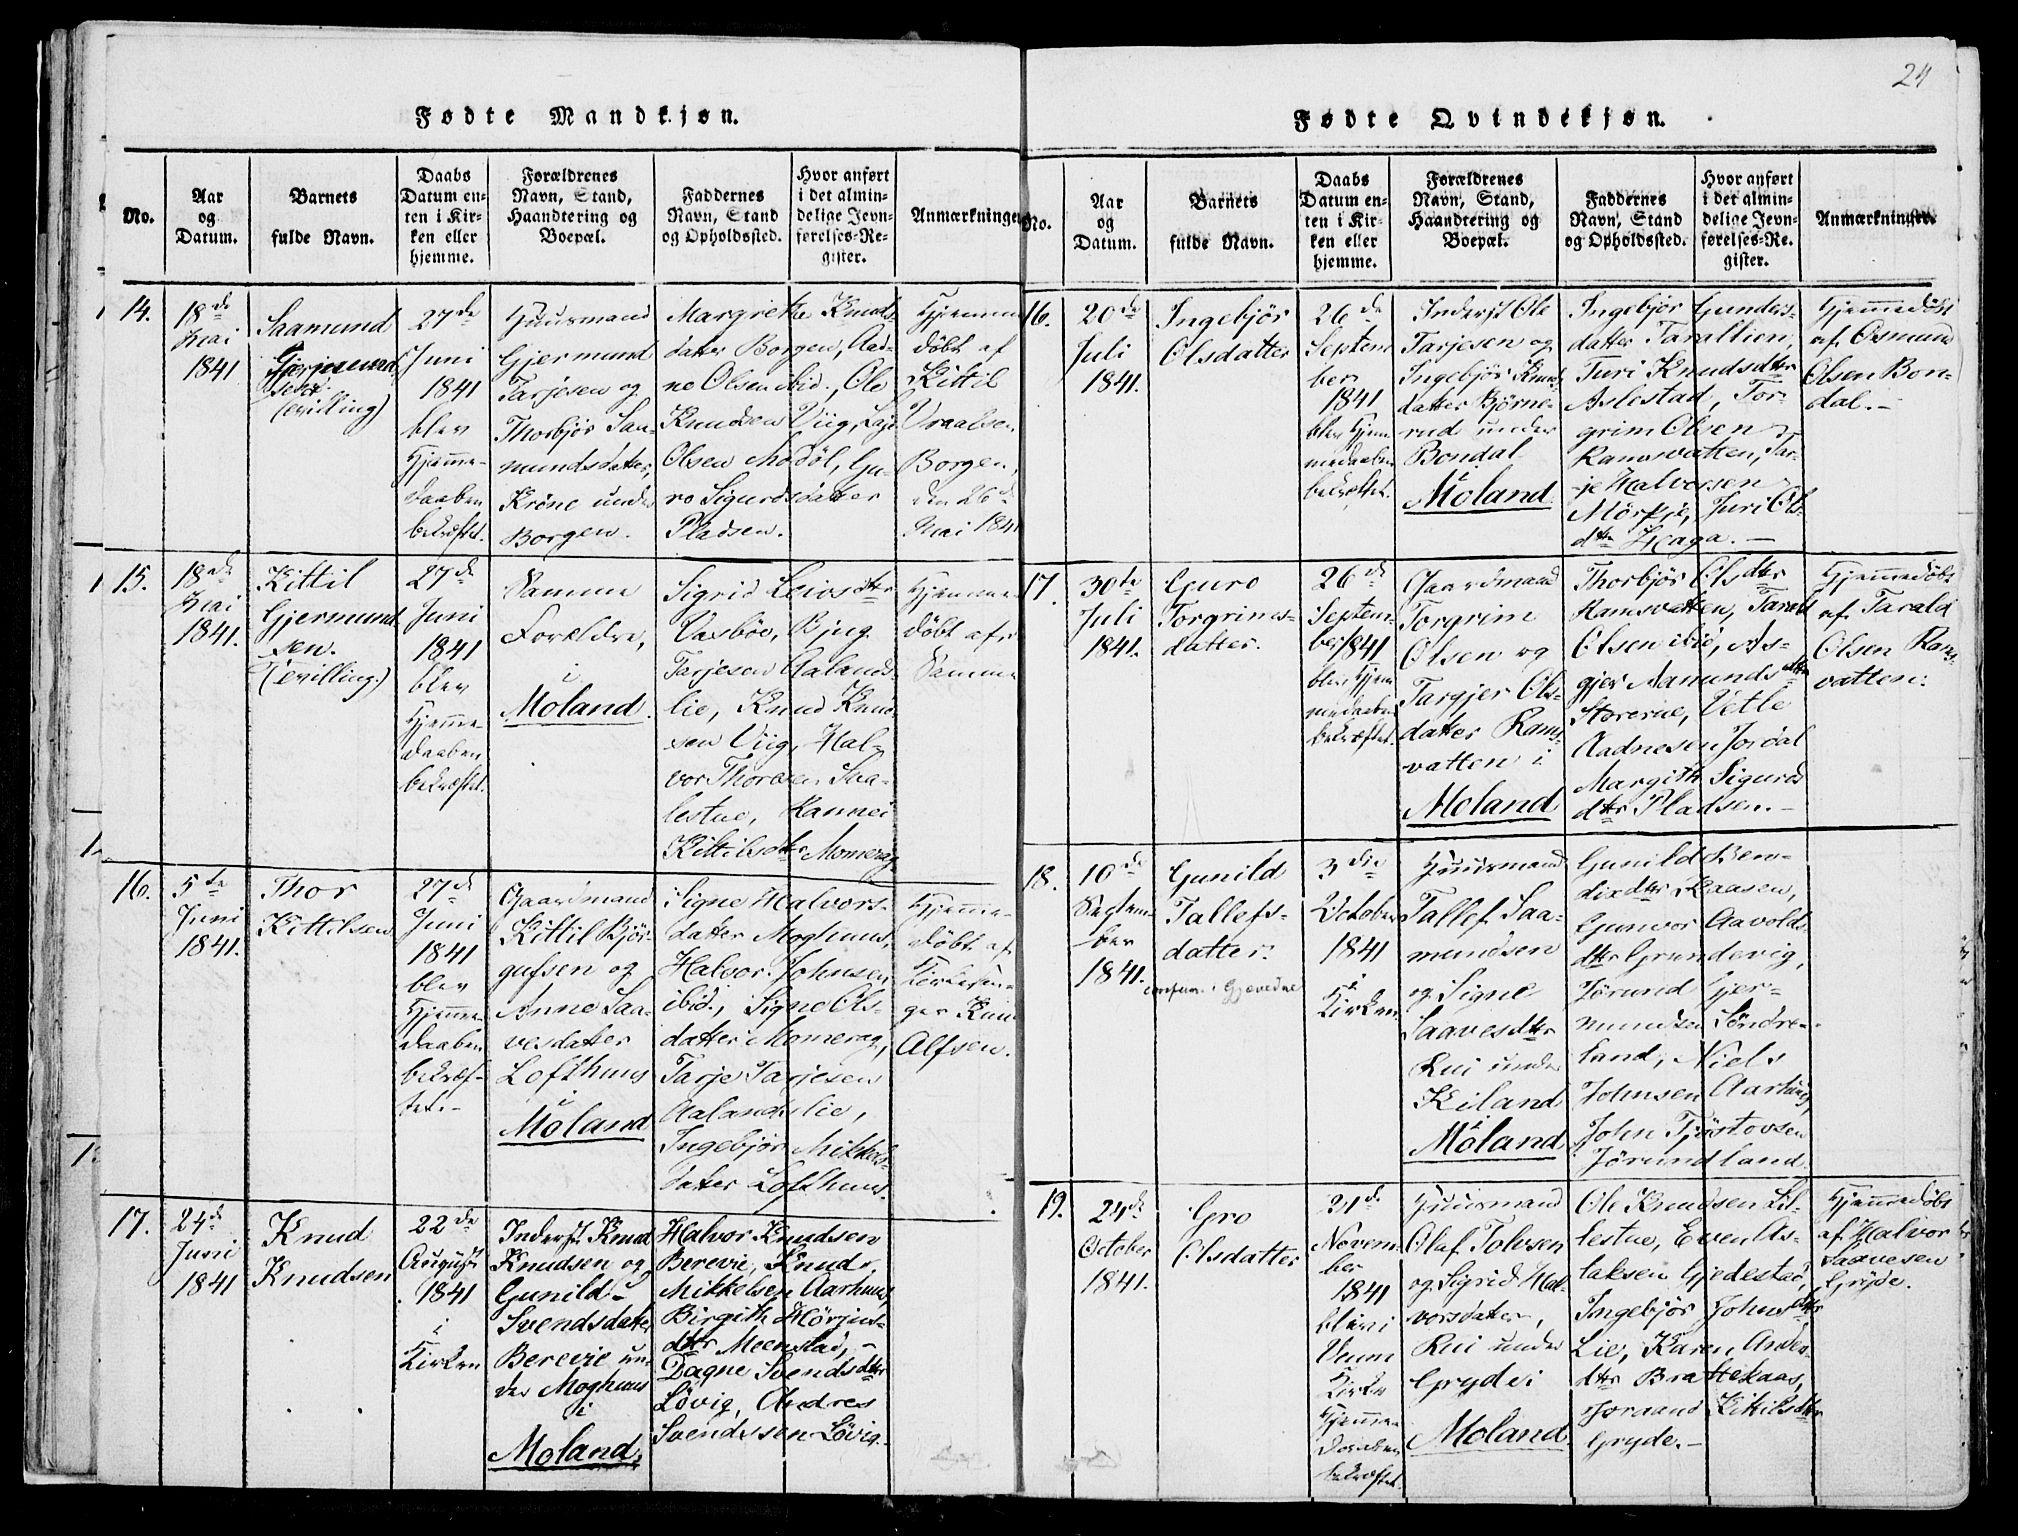 24
Fødte Mandkjøn.
No.
Aar
og
Datum.
Barnets
fulde Navn.
Daabs
Datum en-
ten i Kir-
ken eller
hjemme.
Forældrenes
Navn, Stand,
Haandtering og
Boepæl.
Faddernes
Navn, Stand
og Opholdssted.
Hvor anført
i det almin-
delige Jevn-
førelses-Re-
gister.
Anmærkninger
14.
18de
Mai
1841
Saamund
Gjermund
sen.
(tvilling)
27de
Juni
1841
blev
Hjemme-
daaben
bekræftet.
Huusmand
Gjermund
Tarjesen og
Thorbjør Saa-
mundsdatter,
Krone under
Borgen.
Margrethe Knuds-
datter Borgen, Aad-
ne Olsen ibid., Ole
Knudsen Viig,
Olsen Modøl, Gu-
ro Sigurdsdatter
Pladsen.
Hjemme
døbt af
Kittil
Vraalsen
Borgen,
den 26de
Mai 1841
15.
18de
Mai
1841.
Kittil
Gjermund
sen.
(Tvilling.)
27de
Juni
1841
blev
Hjemme
daaben
bekræftet.
Samme
Forældre,
i
Moland.
Sigrid Leivsdtr
Vasbøe, Bjug
Tarjesen Aalands-
lie, Knud Knud-
sen Viig, Hal-
vor Thorsen Saa-
lestue, Hannei
Kittilsdtr Momerag
Hjemme
døbt af
Samme
16.
5te
Juni
1841.
Thor
Kittilsen
27de
Juni
1841
blev
Hjemme-
daaben
bekræf-
tet.-
Gaardmand
Kittil Bjør-
gufsen og
Anne Saa-
vesdatter
Lofthuus
i
Moland
Signe Halvors-
datter Moghuus,
Halvor Johnsen
ibid., Signe Ols-
datter Momerag,
Tarje Tarjesen
Aalandslie,
Ingebjør Mikkels-
datter Lofthuus.
Hjemme-
døbt af
Kirkesan-
ger Knud
Alfsen.
17.
24de
Juni
1841
Knud
Knudsen
22de
August
1841
i
Kirken
Inderst Knud
Knudsen og
Gunild
Svendsdatter
Berevie un-
der Moghuus
i
Moland.
Halvor Knudsen
Berevie, Knud
Mikkelsen Aarhuus,
Birgith Hørjus-
dtr Meenstad, -
Dagne Svendsdtr
Løvig, Andres
Svendssen Løvig.
Fødte Qvindekjøn.
No.
Aar
og
Datum.
Barnets
fulde Navn.
Daabs
Datum en-
ten i Kir-
ken eller
hjemme.
Forældrenes
Navn, Stand,
Haandtering og
Boepæl.
Faddernes
Navn, Stand
og Opholdssted.
Hvor anført
i det almin-
delige Jevn-
førelses-Re-
gister.
Anmærkninger.
16.
20de
Juli
1841.
Ingebjør
Olsdatter
26de
Septem
ber
1841
blev Hjem
medaaben
bekræftet.
Inderst Ole
Tarjesen og
Ingebjør Knuds
datter Bjørne-
rud under
Bondal
i
Moland
Ingebjør Gunders-
datter Taraltlien,
Turi Knudsdtr
Aslestad, Tor-
grim Olsen
Ramsvatten, Tar-
je Halvorsen
Mørkje, Juri Ols-
dtr Heaga. -
Hjemmedøbt
af Osmund
Olsen Bon-
dal. -
17.
30te
Juli
1841.
Guro
Torgrims-
datter.
26de
Septem-
ber 1841
blev Hjem
medaaben
bekræftet.
Gaardmand
Torgrim
Olsen og
Targjer Ols-
datter Rams-
vatten i
Moland
Thorbjør Olsdtr
Ramsvatten, Tarald
Olsen ibid, As-
gjer Aamundsdtr
Storerne, Vetle
Aadnesen Jordal
Margith Sigurds
dtr Pladsen. -
Hjemmedøbt
af Tarald
Olsen Rams-
vatten.
18.
10de
Septem-
ber
1841.
Gunild
Tallefs-
datter.
confirm. i Gjevedne
3die
October
1841
i
Kirken
Huusmand
Tallef Saa-
mundsen
og Signe
Saavesdtr
Rui under
Kiland
i
Moland
Gunild Ben-
dixdtr Kaasen,
Gunvor Aavolds
dtr Grundevig,
Jørund Gjer-
mundsen Søndre-
land, Niels
Johnsen Aarhuus,
John Tjøstovsen
Jørundland.
19.
24de
October
1841.
Gro
Olsdatter
21de
Novem-
ber
1841
blev i
Veum
Kirke
Hjemme
daaben
bekræftet.
Huusmand
Olaf Tolvsen
og Sigrid Hal-
vorsdatter,
Rui under
Gryde i
Moland
Ole Knudsen Lil-
lestue, Even As-
laksen Gjedestad,
Ingebjør Johnsdtr
Lie, Karen Anders-
dtr Brattekaas,
Joraand Kittilsdtr
Gryde. -
Hjemmedøbt
af Halvor
Saavesen
Gryde.